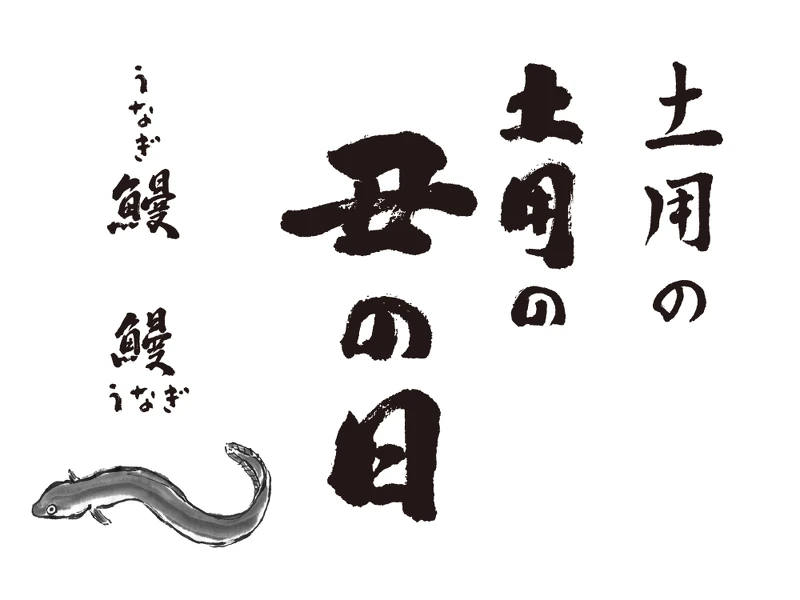 土用の
土用の
丑の日
うなぎ
鰻
鰻
うなぎ